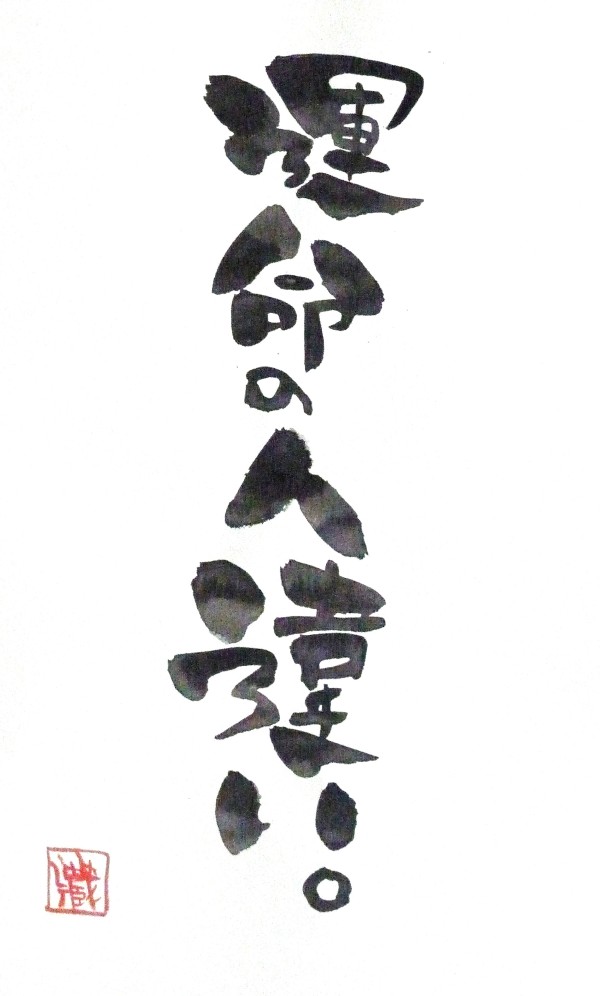 運命の人違い。